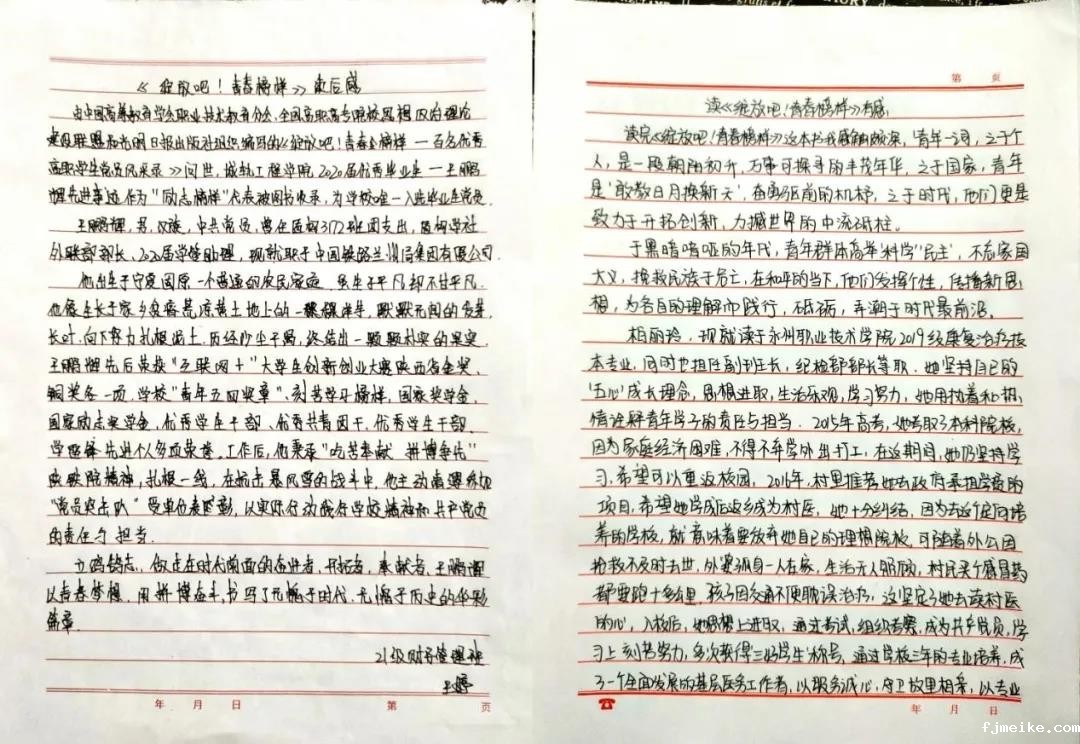 《绽放吧！青春榜样》读后感
由中国高等教育学会职业技术教育分会、全国高职高专院校思想政治理论
建设联盟和光明日报出版社组织编写的《绽放吧！青春榜样——百名优秀
高职学生党员风采录》问世，城轨工程学院2020届优秀毕业生——王鹏
辉先进事迹作为"励志榜样"代表被图书收录，为学校唯一入选毕业生党员
王鹏辉，男，汉族，中共党员，曾任盾构3172班团支书，盾构学社
外联部部长，2020届学管助理，现就职于中国铁路兰州局集团有限公司
他出生于宁夏固原一个普通的农民家庭，虽生于平凡却不甘平凡
他像生长于家乡贫瘠荒凉黄土地上的一颗颗洋芋，默默无闻的发芽
长叶，向下努力扎根出土，历经沙尘干旱，终结出一颗颗朴实的果实
王鹏辉先后荣获"互联网+"大学生创新创业大赛陕西省金奖、
铜奖各一项，学校"青年五四奖章"、刻苦学习榜样，国家奖学金，
国家励志奖学金，优秀学生干部、优秀共青团干、优秀学生干部、
学雷锋先进个人多项荣誉。工作后，他秉承"吃苦奉献 拼搏争先"
陕铁院精神，扎根一线，在抗击暴风雪的战斗中，他主动请缨参加
"党员突击队"受单位表彰，以实际行动践行学校精神和共产党员
的责任与担当
立鸿鹄志，做走在时代前面的奋进者，开拓者，奉献者，王鹏辉
以青春梦想，用拼搏奋斗书写了无愧于时代，无愧于历史的华彩
篇章
21级财务管理班
王婷
年 月 日 第 页
第 页
读《绽放吧！青春榜样》有感
读完《绽放吧！青春榜样》这本书我感触颇深，"青年"一词，之于个
人，是一段朝阳初升，万事可探寻的丰茂年华，之于国家，青年
是"敢教日月换新天"，奋勇向前的机杼，之于时代，他们更是
致力于开拓创新，力撼世界的中流砥柱。
于黑暗喑哑的年代，青年群体高举"科学""民主"，不忘家国
大义，挽救民族于危亡，在和平的当下，他们发挥个性，传播新思
想，为各自的理解而践行，砥砺，弄潮于时代最前沿。
柏丽玲，现就读于永州职业技术学院2019级康复治疗技
术专业，同时也担任副班长，纪检部部长等职，她坚持自己的
"五心"成长理念，思想进取，生活乐观，学习努力，她用执着和热
情诠释青年学子的责任与担当。2015年高考，她考取了本科院校，
因为家庭经济困难，不得不弃学外出打工，在这期间，她仍坚持学
习，希望可以重返校园，2016年，村里推荐她去政府承担学费的
项目，希望她学成后返乡成为村医，她十分纠结，因为去这个定向培
养的学校，就意味着要放弃她自己的理想院校，可随着外公因
抢救不及时去世，外婆孤身一人在家，生活无人照顾，村民买个感冒药
都要跑十多公里，孩子因交通不便耽误治疗，这坚定了她去读村医
的心，入校后，她思想上进取，通过考试，组织考察，成为共产党员，学
习上刻苦努力，多次获得"三好学生"称号，通过学校三年的专业培养，成
了一个全面发展的基层医务工作者，以服务诚心，守卫故里相亲，以专业
年 月 日
fjmeike.com